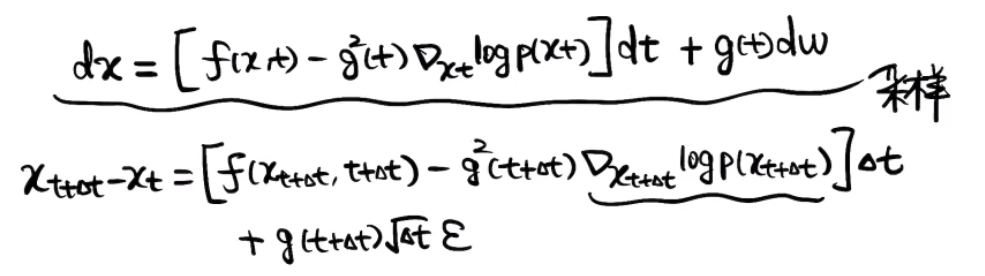 dx = [f(x,t) - g²(t)∇_{x_t} log p(x_t)]dt + g(t)dw
采样
x_{t+Δt} - x_t = [f(x_{t+Δt}, t+Δt) - g²(t+Δt)∇_{x_{t+Δt}} log p(x_{t+Δt})]Δt
+ g(t+Δt)√Δt ε